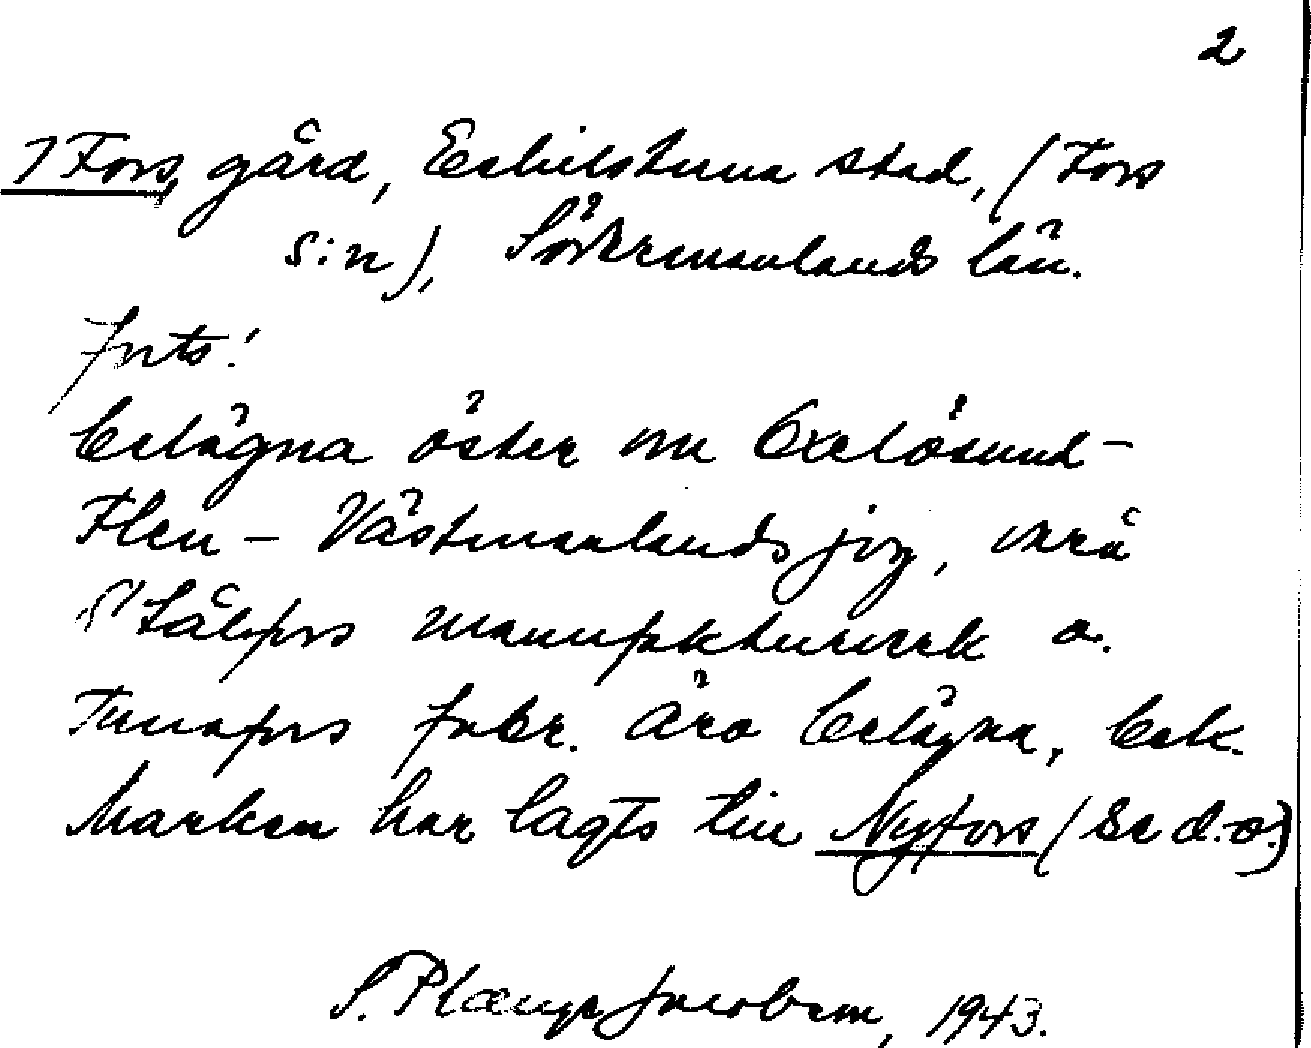 2
7 Fors, gård, Eskilstuna stad, (Fors
s:n), Södermanlands län.
forts:
belägna öster om Oxelösund-
Flen - Västmanlands jvg, varå
Stålfors manufakturverk o.
Tunafors fabr. äro belägna, bek.
Marken har lagts till Nyfors (Se d. o.)
S. Plænge Jacobson, 1943.